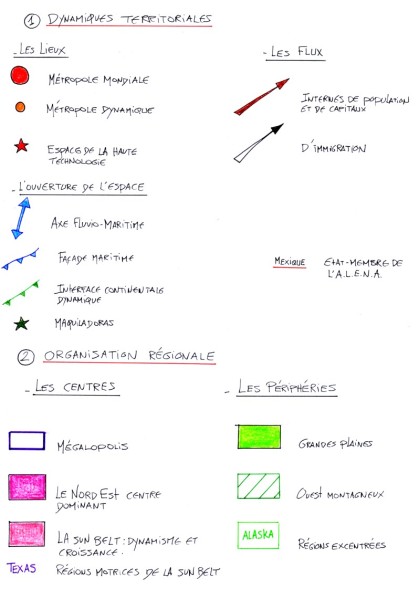 ① DYNAMIQUES TERRITORIALES
- LES LIEUX
MÉTROPOLE MONDIALE
MÉTROPOLE DYNAMIQUE
ESPACE DE LA HAUTE
TECHNOLOGIE
- LES FLUX
INTERNES DE POPULATION
ET DE CAPITAUX
D'IMMIGRATION
- L'OUVERTURE DE L'ESPACE
AXE FLUVIO-MARITIME
FAÇADE MARITIME
INTERFACE CONTINENTALE
DYNAMIQUE
MAQUILADORAS
MEXIQUE ETAT-MEMBRE DE
L'A.L.E.N.A.
② ORGANISATION RÉGIONALE
- LES CENTRES
MÉGALOPOLIS
LE NORD EST CENTRE
DOMINANT
LA SUN BELT : DYNAMISME ET
CROISSANCE.
TEXAS RÉGIONS MOTRICES DE LA SUN BELT
- LES PÉRIPHÉRIES
GRANDES PLAINES
OUEST MONTAGNEUX
ALASKA RÉGIONS EXCENTRÉES